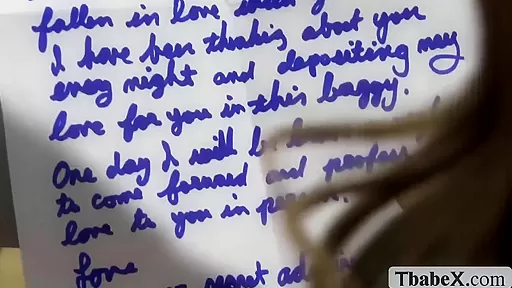 fallen in love
I have been thinking about you
every night and depositing my
love for you in this baggy.
One day I will be
to come forward and profess
love to you in
Love
secret
TbabeX.com